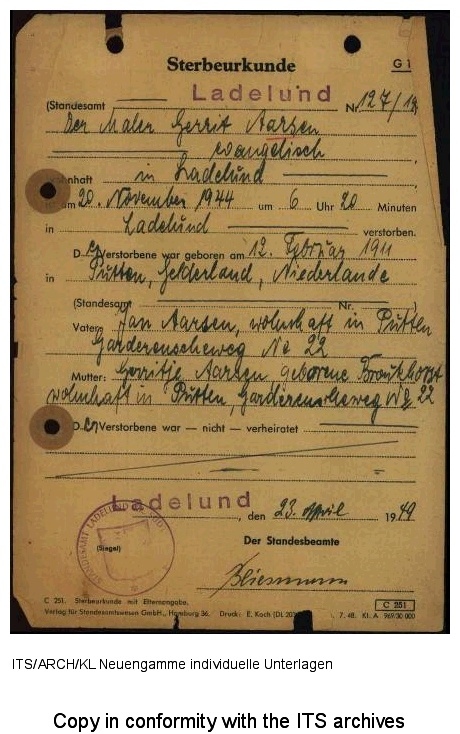 Sterbeurkunde
G 1
(Standesamt Ladelund Nr. 127/19
Der Maler Gerrit Aarsen
evangelisch
wohnhaft in Ladelund
ist am 20. November 1944 um 6 Uhr 20 Minuten
in Ladelund verstorben.
D er Verstorbene war geboren am 12. Februar 1911
in Putten, Gelderland, Niederlande
(Standesamt Nr. )
Vater: Jan Aarsen, wohnhaft in Putten
Garderenscheweg No 22
Mutter: Gerritje Aarsen geborene
wohnhaft in Putten, Garderenscheweg No 22
D er Verstorbene war — nicht — verheiratet
Ladelund, den 23. April 1949
(Siegel)
STANDESAMT LADELUND
Der Standesbeamte
C 251. Sterbeurkunde mit Elternangabe.
C 251
Verlag für Standesamtswesen GmbH., Hamburg 36. Druck: E. Koch (DL 7. 48. Kl. A 969/30 000
ITS/ARCH/KL Neuengamme individuelle Unterlagen
Copy in conformity with the ITS archives